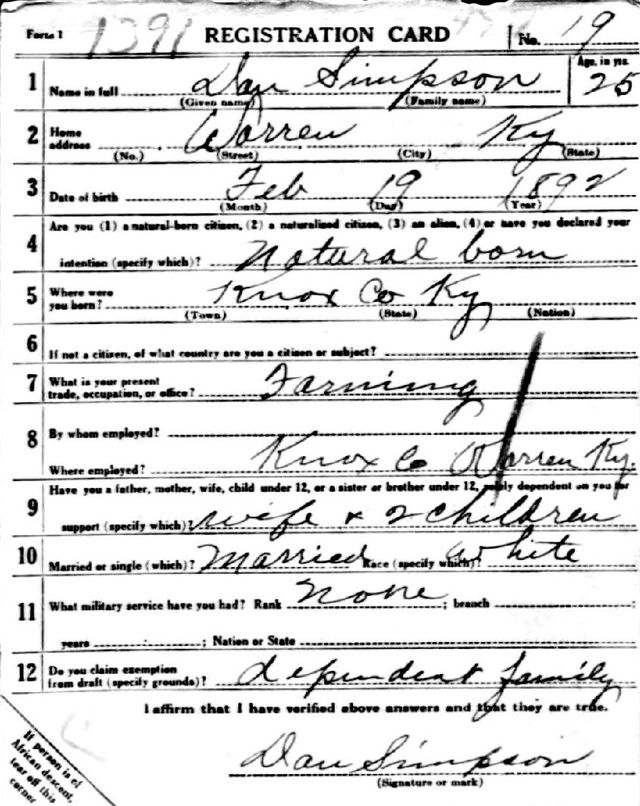 Form 1 1391 REGISTRATION CARD No. 19
1 Name in full Dan Simpson Age, in yrs. 25
(Given name) (Family name)
2 Home address Warren Ky
(No.) (Street) (City) (State)
3 Date of birth Feb 19 1892
(Month) (Day) (Year)
4 Are you (1) a natural-born citizen, (2) a naturalized citizen, (3) an alien, (4) or have you declared your
intention (specify which)? Natural born
5 Where were you born? Knox Co Ky
(Town) (State) (Nation)
6 If not a citizen, of what country are you a citizen or subject?
7 What is your present trade, occupation, or office? Farming
8 By whom employed?
Where employed? Knox Co Warren Ky.
9 Have you a father, mother, wife, child under 12, or a sister or brother under 12, solely dependent on you for
support (specify which)? wife & 2 children
10 Married or single (which)? Married Race (specify which)? White
11 What military service have you had? Rank None ; branch
years ; Nation or State
12 Do you claim exemption from draft (specify grounds)? dependent family
I affirm that I have verified above answers and that they are true.
Dan Simpson
(Signature or mark)
If person is of
African descent,
tear off this
corner